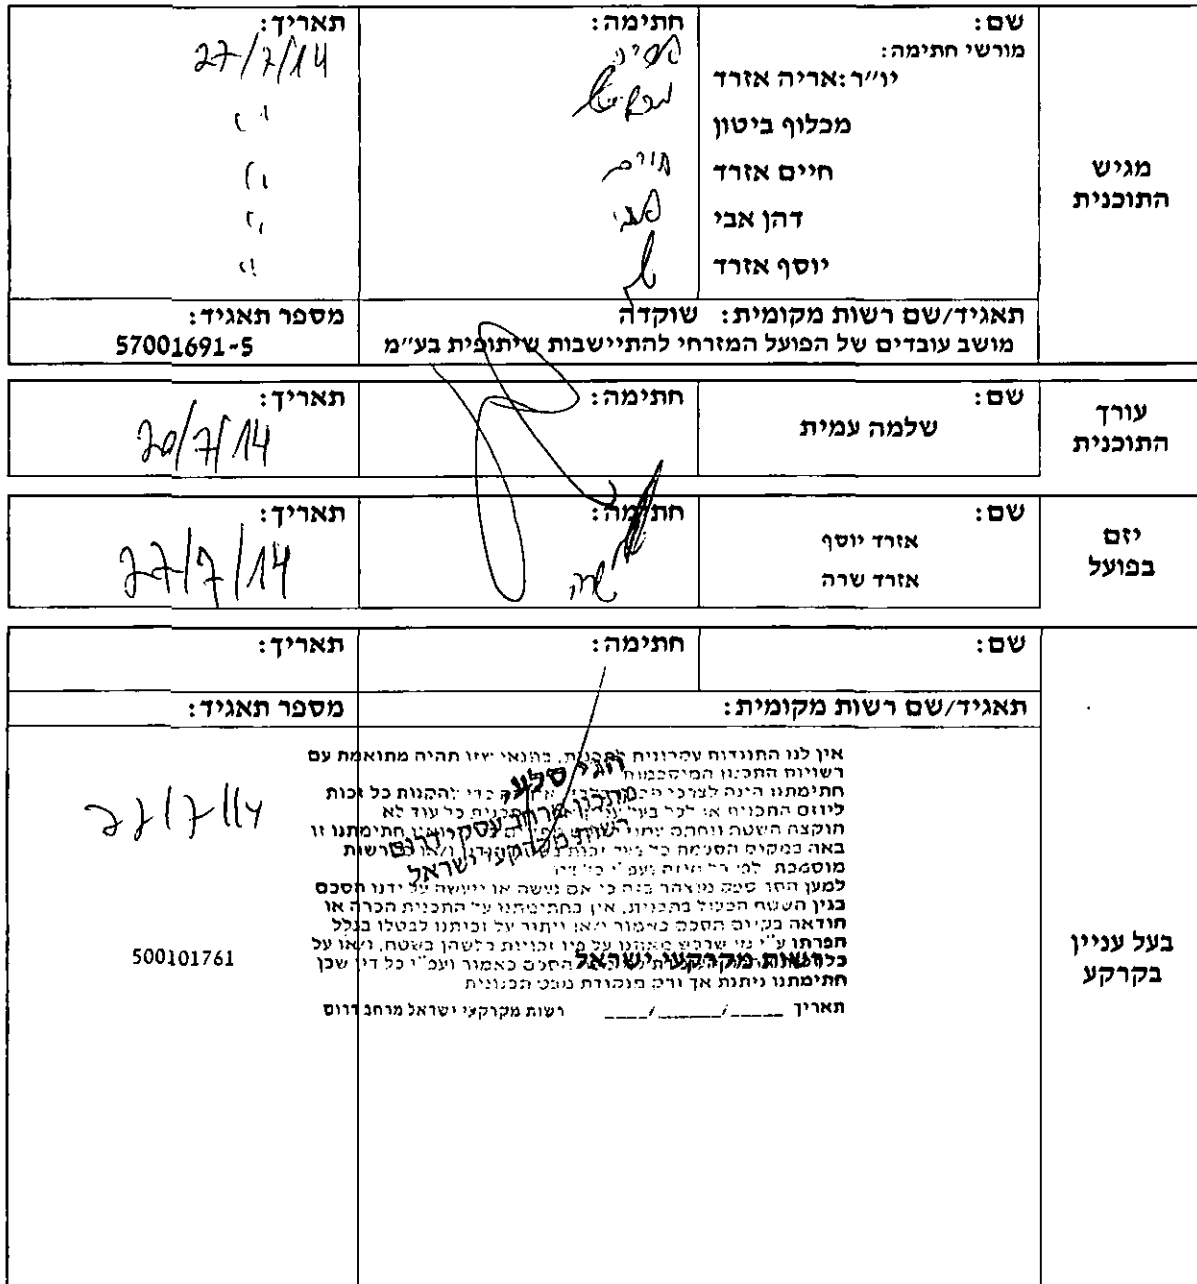 שם:
חתימה:
תאריך:
מורשי חתימה:
27/7/14
יו״ר:אריה אזרד
מכלוף ביטון
חיים אזרד
חיים
דהן אבי
יוסף אזרד
מגיש
התוכנית
תאגיד/שם רשות מקומית: שוקדה
מספר תאגיד:
מושב עובדים של הפועל המזרחי להתיישבות שיתופית בע״מ
57001691-5
עורך
התוכנית
שם:
חתימה:
תאריך:
שלמה עמית
20/7/14
יזם
בפועל
שם:
חתימה:
תאריך:
אזרד יוסף
אזרד שרה
שרה
27/7/14
בעל עניין
בקרקע
שם:
חתימה:
תאריך:
תאגיד/שם רשות מקומית:
מספר תאגיד:
אין לנו התנגדות עקרונית לתכנית, בתנאי שזו תהיה מתואמת עם
רשויות התכנון המוסמכות
חתימתנו הינה לצרכי תכנון בלבד, אין בה כדי להקנות כל זכות
ליוזם התכנית או לכל בעל ענין אחר בשטח התכנית כל עוד לא
הוקצה השטח ונחתם עמנו הסכם מתאים בגינו, ואין חתימתנו זו
באה במקום הסכמת כל בעל זכות בשטח הנדון ו/או כל רשות
מוסמכת, לפי כל חוזה ועפ״י כל דין
למען הסר ספק מוצהר בזה כי אם נעשה או ייעשה על ידנו הסכם
בגין השטח הכלול בתכנית, אין בחתימתנו על התכנית הכרה או
הודאה בקיום הסכם כאמור ו/או ויתור על זכותנו לבטלו בגלל
הפרתו ע״י מי שרכש מאתנו על פיו זכויות כלשהן בשטח, ו/או על
הסכם כאמור ועפ״י כל דין שכן
חתימתנו ניתנת אך ורק מנקודת מבט תכנונית
תאריך ____/____/____ רשות מקרקעי ישראל מרחב דרום
חגי סלע
מתכנן מרחב עסקי דרום
רשות מקרקעי ישראל
רשות מקרקעי ישראל
27/7/14
500101761